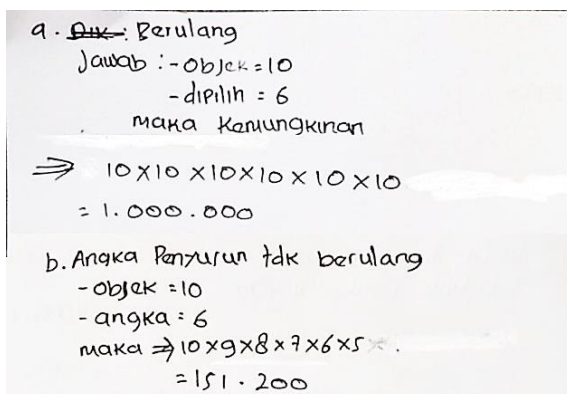 a. Dik : Berulang
Jawab : - Objek = 10
- dipilih = 6
maka Kemungkinan
⇒ 10 x 10 x 10 x 10 x 10 x 10
= 1.000.000
b. Angka Penyusun tdk berulang
- objek = 10
- angka = 6
maka ⇒ 10 x 9 x 8 x 7 x 6 x 5
= 151.200